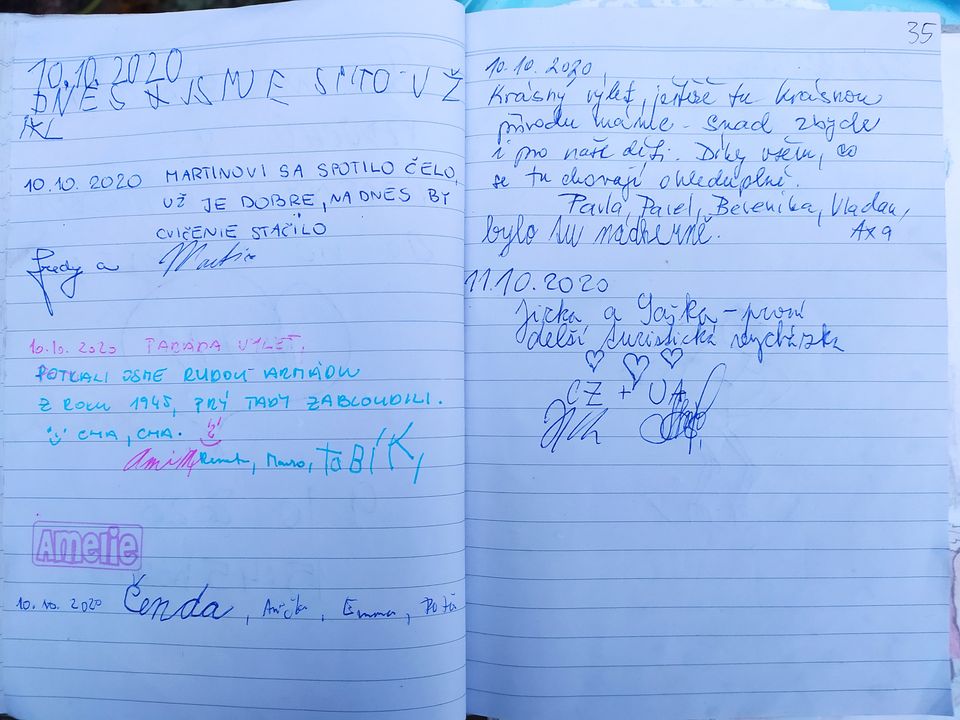 10.10.2020
DNES JSME SI TO UŽ
10.10.2020 MARTINOVI SA SPOTILO ČELO,
UŽ JE DOBRE, NA DNES BY
CVIČENIE STAČILO
Fredy a Martin
10.10.2020 PARÁDA VÝLET.
POTKALI JSME RUDOU ARMÁDU
Z ROKU 1945, PRÝ TADY ZABLOUDILI.
CHA, CHA.
Renata, Mauro, TOBÍK,
Amelie
10.10.2020 Čenda, Anička, Emma,
35
10.10.2020,
Krásný výlet, ještěže tu krásnou
přírodu máme - snad zbyde
i pro naše děti. Díky všem, co
se tu chovají ohleduplně.
Pavla, Pavel, Berenika, Vladan,
Axa
bylo tu nádherně.
11.10.2020
Jirka a Saška - první
delší turistická vycházka
CZ + UA